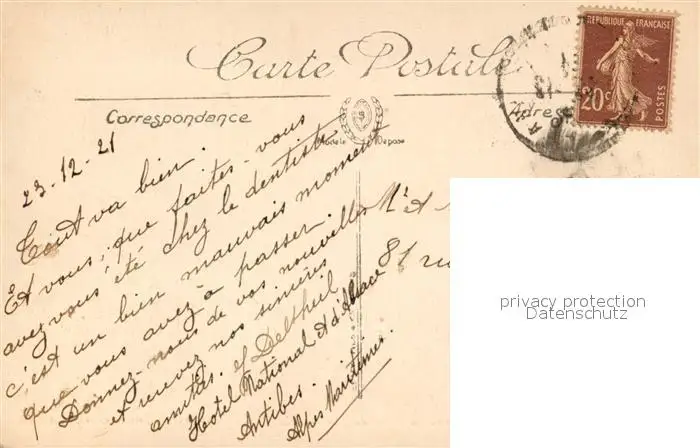 Carte Postale
REPUBLIQUE FRANÇAISE
20c
POSTES
Correspondance
Adresse
Modèle Déposé
23-12-21
Tout va bien.
Et vous, que faites-vous
avez vous été chez le dentiste
c'est un bien mauvais moment
que vous avez à passer.
Donnez-nous de vos nouvelles
et recevez nos sincères
amitiés. Deltheil
Hotel National et d'Alsace
Antibes.
Alpes Maritimes.
Mr et
81 ru
privacy protection
Datenschutz